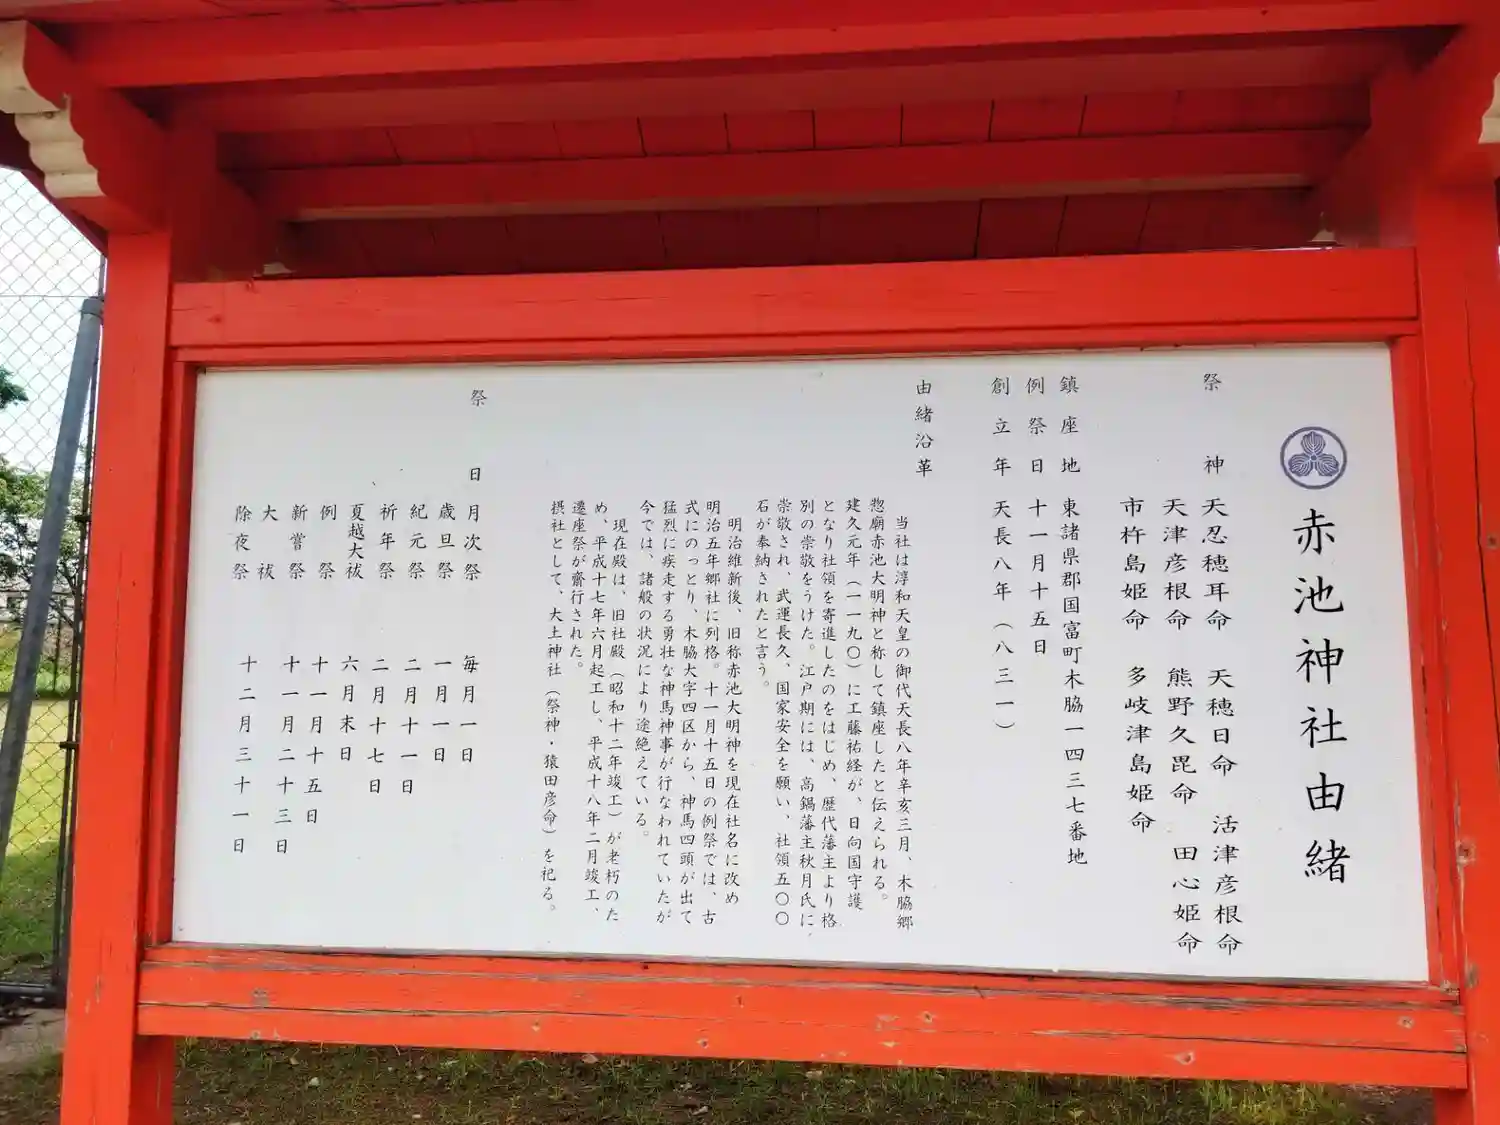 赤池神社由緒
祭神 天忍穂耳命 天穂日命 活津彦根命
天津彦根命 熊野久毘命 田心姫命
市杵島姫命 多岐津島姫命
鎮座地 東諸県郡国富町木脇一四三七番地
例祭日 十一月十五日
創立年 天長八年(八三一)
由緒沿革
当社は淳和天皇の御代天長八年辛亥三月、木脇郷
惣廟赤池大明神と称して鎮座したと伝えられる。
建久元年(一一九〇)に工藤祐経が、日向国守護
となり社領を寄進したのをはじめ、歴代藩主より格
別の崇敬をうけた。江戸期には、高鍋藩主秋月氏に、
崇敬され、武運長久、国家安全を願い、社領五〇〇
石が奉納されたと言う。
明治維新後、旧称赤池大明神を現在社名に改め
明治五年郷社に列格。十一月十五日の例祭では、古
式にのっとり、木脇大字四区から、神馬四頭が出て
猛烈に疾走する勇壮な神馬神事が行なわれていたが
今では、諸般の状況により途絶えている。
現在殿は、旧社殿(昭和十二年竣工)が老朽のた
め、平成十七年六月起工し、平成十八年二月竣工、
遷座祭が齋行された。
摂社として、大土神社(祭神・猿田彦命)を祀る。
祭日 月次祭 毎月一日
歳旦祭 一月一日
紀元祭 二月十一日
祈年祭 二月十七日
夏越大祓 六月末日
例祭 十一月十五日
新嘗祭 十一月二十三日
大祓
除夜祭 十二月三十一日